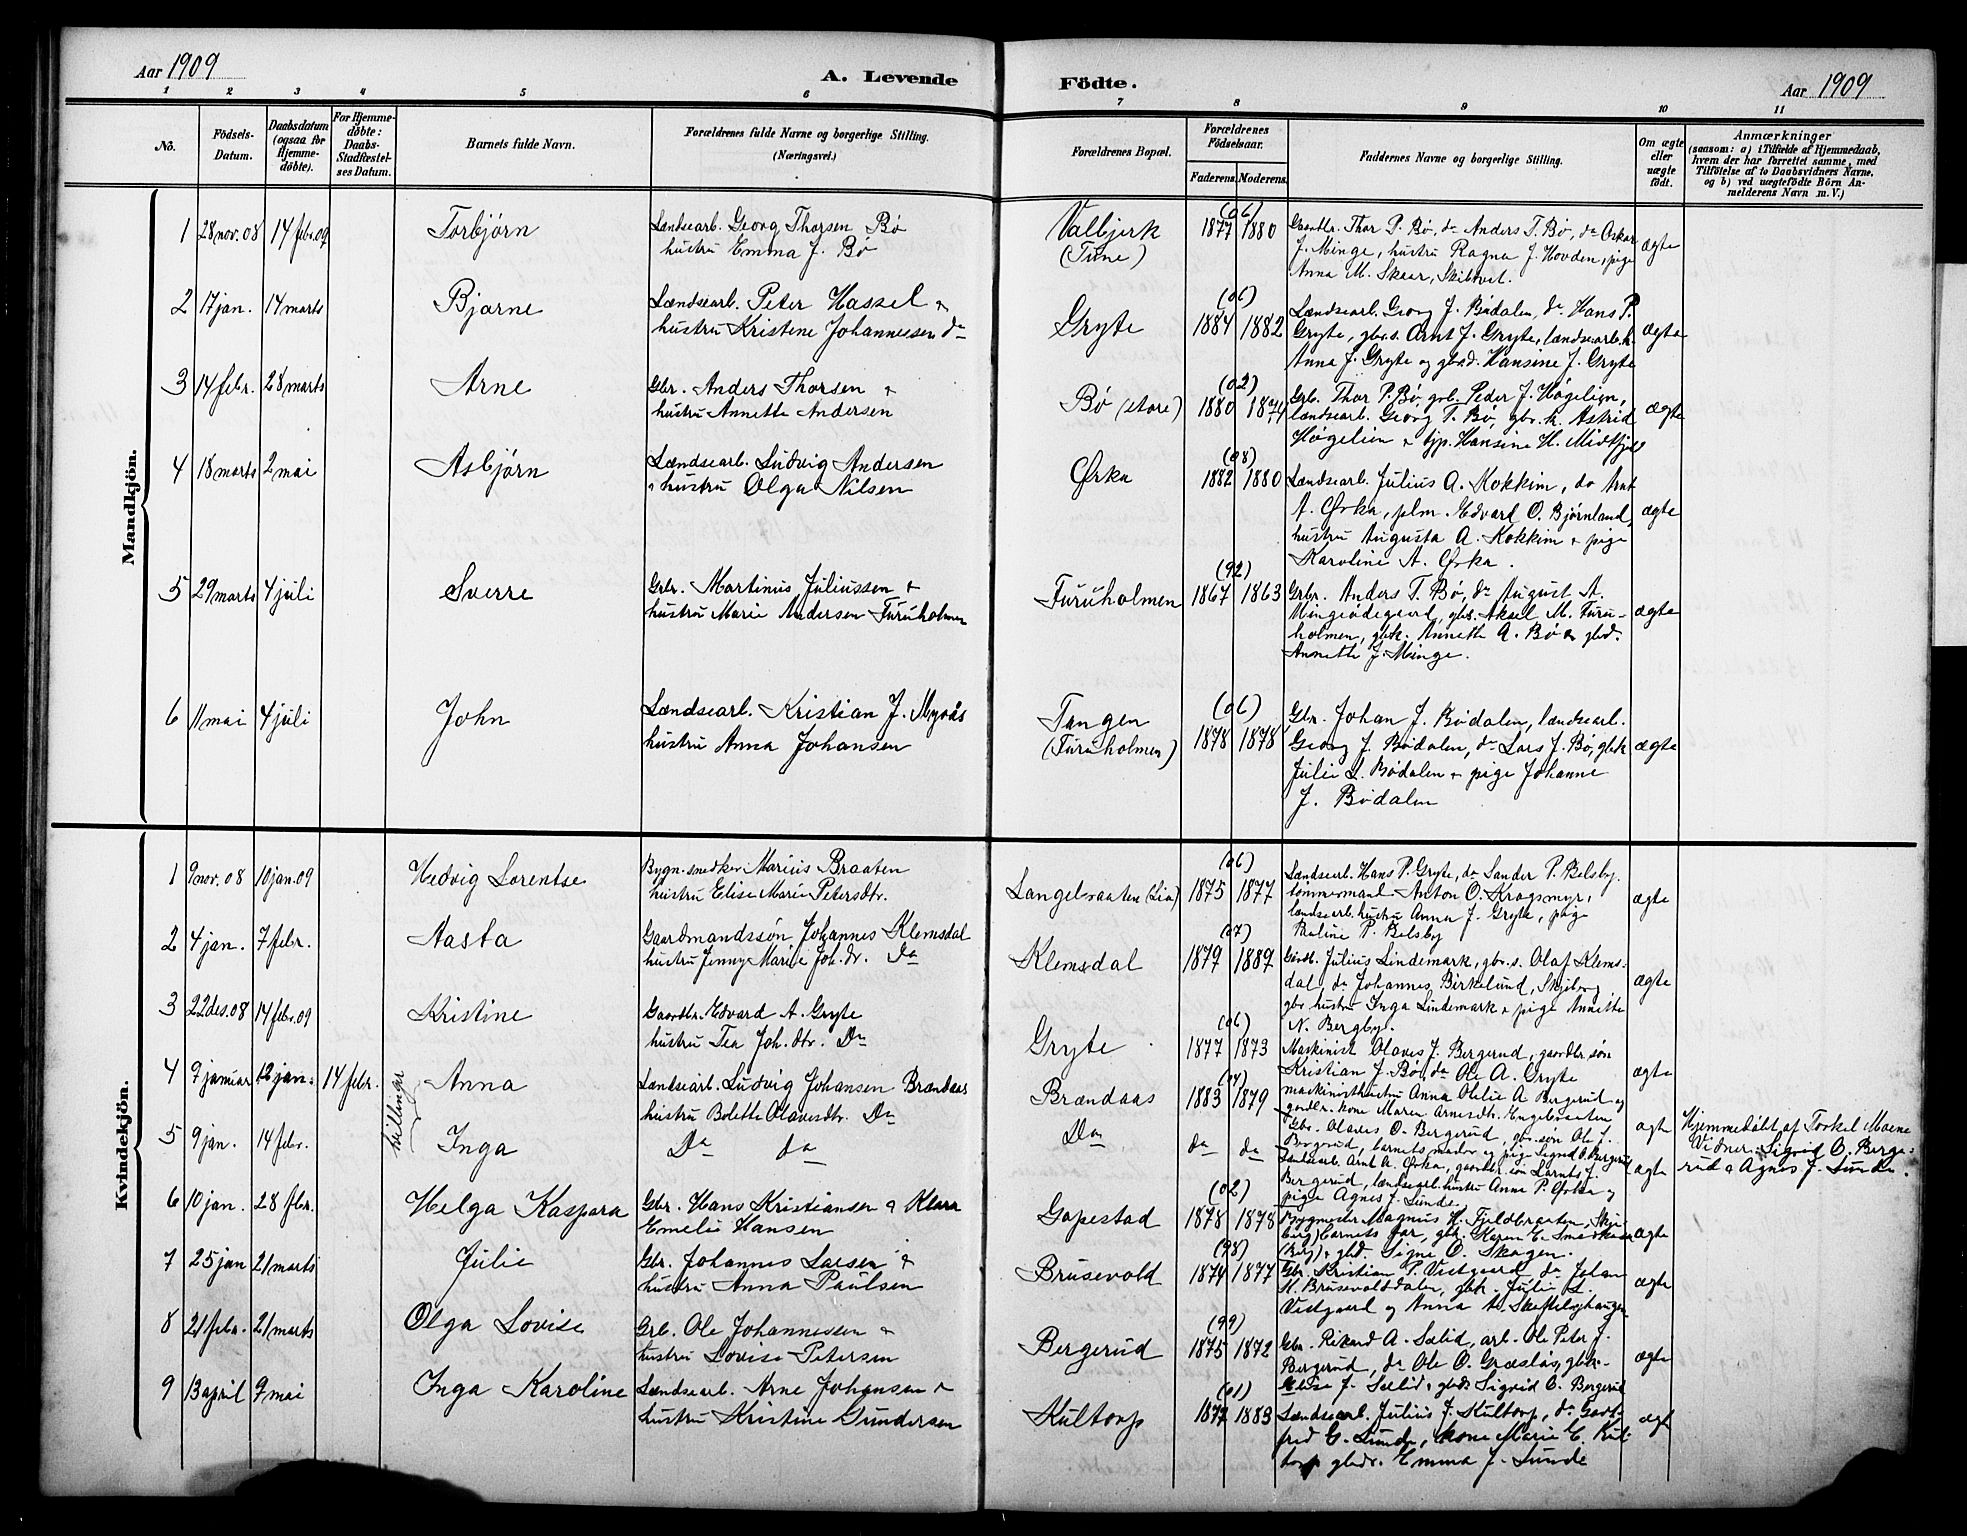 Aar 1909
A. Levende
Födte.
Aar 1909
1 2 3 4 5 6 7 8 9 10 11
No.
Födsels-
Datum.
Daabsdatum
(ogsaa for
Hjemme-
döbte).
For Hjemme-
döbte:
Daabs-
Stadfæstel-
ses Datum.
Barnets fulde Navn.
Forældrenes fulde Navne og borgerlige Stilling.
(Næringsvei.)
Forældrenes Bopæl.
Forældrenes
Födselsaar.
Faderens. Moderens.
Faddernes Navne og borgerlige Stilling.
Om ægte
eller
uægte
födt.
Anmærkninger
(saasom: a) i Tilfælde af Hjemmedaab,
hvem der har forrettet samme, med
Tilföielse af to Daabsvidners Navne,
og b) ved uægtefödte Börn An-
melderens Navn m. V.)
Mandkjön.
1 28 nov. 08 14 febr. 09 Torbjørn
Landsearb. Georg Thorsen Bø
hustru Emma J. Bø
Valbjerk
(Tune)
(06)
1877 1880
Gaardbr. Thor P. Bø, do Anders T. Bø, do Oskar
J. Minge, hustru Ragna J. Hovden, pige
Anna M. Skaar, Skibtvet.
ægte
2 17 jan. 14 marts Bjarne
Lændsearb. Peter Hassel &
hustru Kristene Johannessen do
Gryte
(06)
1884 1882
Lændsearb. Georg J. Bødalen, do Hans P.
Gryte, gbr.s. Arnt J. Gryte, lændsearb.h.
Anna J. Gryte og gbrd. Hansine J. Gryte
ægte
3 14 febr. 28 marts Arne
Gbr. Anders Thorsen &
hustru Annette Andersen
Bø (store)
(02)
1880 1874
Grb. Thor P. Bø, grb. Peder J. Høgelien,
lændsearb. Georg T. Bø, gbr. h. Astrid
Høgelien & tjp. Hansine H. Midtfjeld
ægte
4 18 marts 2 mai Asbjørn
Lændsearb. Ludvig Andersen
& hustru Olga Nilsen
Ørka
(08)
1882 1880
Lændsearb. Julius A. Kokkim, do Arnt
A. Ørka, plm. Edvard O. Bjørnland,
hustru Augusta A. Kokkim & pige
Karoline A. Ørka.
ægte
5 29 marts 4 juli Sverre
Grbr. Martinus Juliussen &
hustru Marie Andersen Furuholmen
Furuholmen
(92)
1867 1863
Grbr. Anders T. Bø, do August A.
Mingeødegaard, gbs. Aksel M. Furu-
holmen, gbk. Annette A. Bø & gbd.
Annette J. Minge.
ægte
6 11 mai 4 juli John
Lændsearb. Kristian J. Myrås
hustru Anna Johansen
Tangen
(Furuholmen)
(06)
1878 1878
Gbr. Johan J. Bødalen, lændsearb.
Georg J. Bødalen, do Lars J. Bø, gbk
Julie L. Bødalen & pige Johanne
J. Bødalen
ægte
Kvindekjön.
1 9 nov. 08 10 jan. 09 Hedvig Lorentse
Bygn. snedker Marius Braaten
hustru Elise Marie Petersdtr.
Langebraaten (Lia)
(06)
1875 1877
Lændsearb. Hans P. Gryte, do Sander P. Belsby,
tømmermand Anton O. Kragsmyr,
lændsearb. hustru Anna J. Gryte, pige
Baline P. Belsby
ægte
2 4 jan. 7 febr. Aasta
Gaardmandssøn Johannes Klemsdal
hustru Jenny Marie Joh.dr. Do
Klemsdal
(07)
1879 1889
Gardb. Julius Lindemark, gbr.s. Olaf Klems-
dal, do Johannes Birkelund, Skjeberg,
gbr. hustru Inga Lindemark & pige Annette
N. Bergby.
ægte
3 22 des. 08 14 febr. 09 Kristine
Gaardbr. Edvard A. Gryte
hustru Tea Joh.dtr. Do
Gryte
(06)
1877 1873
Maskinist Olaves J. Bergerud, gaardbr. søn
Kristian J. Bø, do Ole A. Gryte
maskinisthustru Anna Olelie A Bergerud og
gardbr. kone Maren Arnesdtr. Engebraaten
ægte
4 7 januar 12 jan. 14 febr. tvillinger Anna
Lændsearb. Ludvig Johansen Brændaas
hustru Bolette Olavesdtr. Do
Brændaas
(04)
1883 1879
Gbr. Olaves O. Bergerud, gbr. søn Ole J.
Bergerud, barnets moder og pige Sigrid O. Bergerud
ægte
Hjemmedöbt af Torkel Moene
Vidner: Sigrid O. Berge-
rud & Agnes J. Sunde.
5 9 jan. 14 febr. Inga
Do do
Do
do do
Lændsearb. Arnt A. Ørka, gaardbr. søn Larnts J.
Bergerud, lændsearb. hustru Anne P. Ørka og
pige Agnes J. Sunde
ægte
6 10 jan. 28 febr. Helga Kaspara
Gbr. Hans Kristiansen & Klara
Emelie Hansen
Gopestad
(02)
1878 1878
Bygmester Magnus H. Fjeldbraaten, Skje-
berg) barnets far, gbk. Karen E.
(Berg) & gbd. Signe O. Skogen.
ægte
7 25 jan 21 marts Julie
Gbr. Johannes Larsen &
hustru Anna Paulsen
Brusevold
(98)
1874 1877
Gbr. Kristian P. Vestgaard, do Johan
H. Brusevolddalen, gbk. Julie L.
Vestgaard og Anna A.
ægte
8 21 febr. 21 marts Olga Lovise
Grb. Ole Johannessen &
hustru Lovise Petersen
Bergerud
(99)
1875 1872
Gbr. Rikard A. Sælid, arb. Ole Peter J.
Bergerud, do Ole O. Græsløs, gbk.
Elise J. Sælid & gbds Sigrid O. Bergerud
ægte
9 13 april 9 mai Inga Karoline
Lændsearb. Arne Johansen &
hustru Kristine Gundersen
Kultorp
(01)
1877 1883
Lændsearb. Julius J. Kultorp, do Godt-
fred E. Sunde, kone Marie E. Kul-
torp gbdr. Emma J. Sunde
ægt